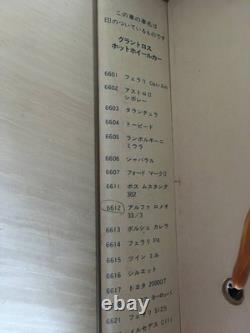 この車の車名は
印のついているものです
グラントロス
ホットホイールカー
6601 フェラリ Can Am
6602 アストロⅡ
シボレー
6603 タランチュラ
6604 トーピード
6605 ランボルギーニ
ミウラ
6606 シャパラル
6607 フォード マークⅡ
6611 ボス ムスタング
302
6612 アルファ ロメオ
33/3
6613 ポルシェ カレラ
6614 フェラリ P4
6615 ツイン ミル
6616 シルエット
6617 トヨタ 2000GT
ヨーロッパ
6621 フェラリ 312S
メルセデス C111